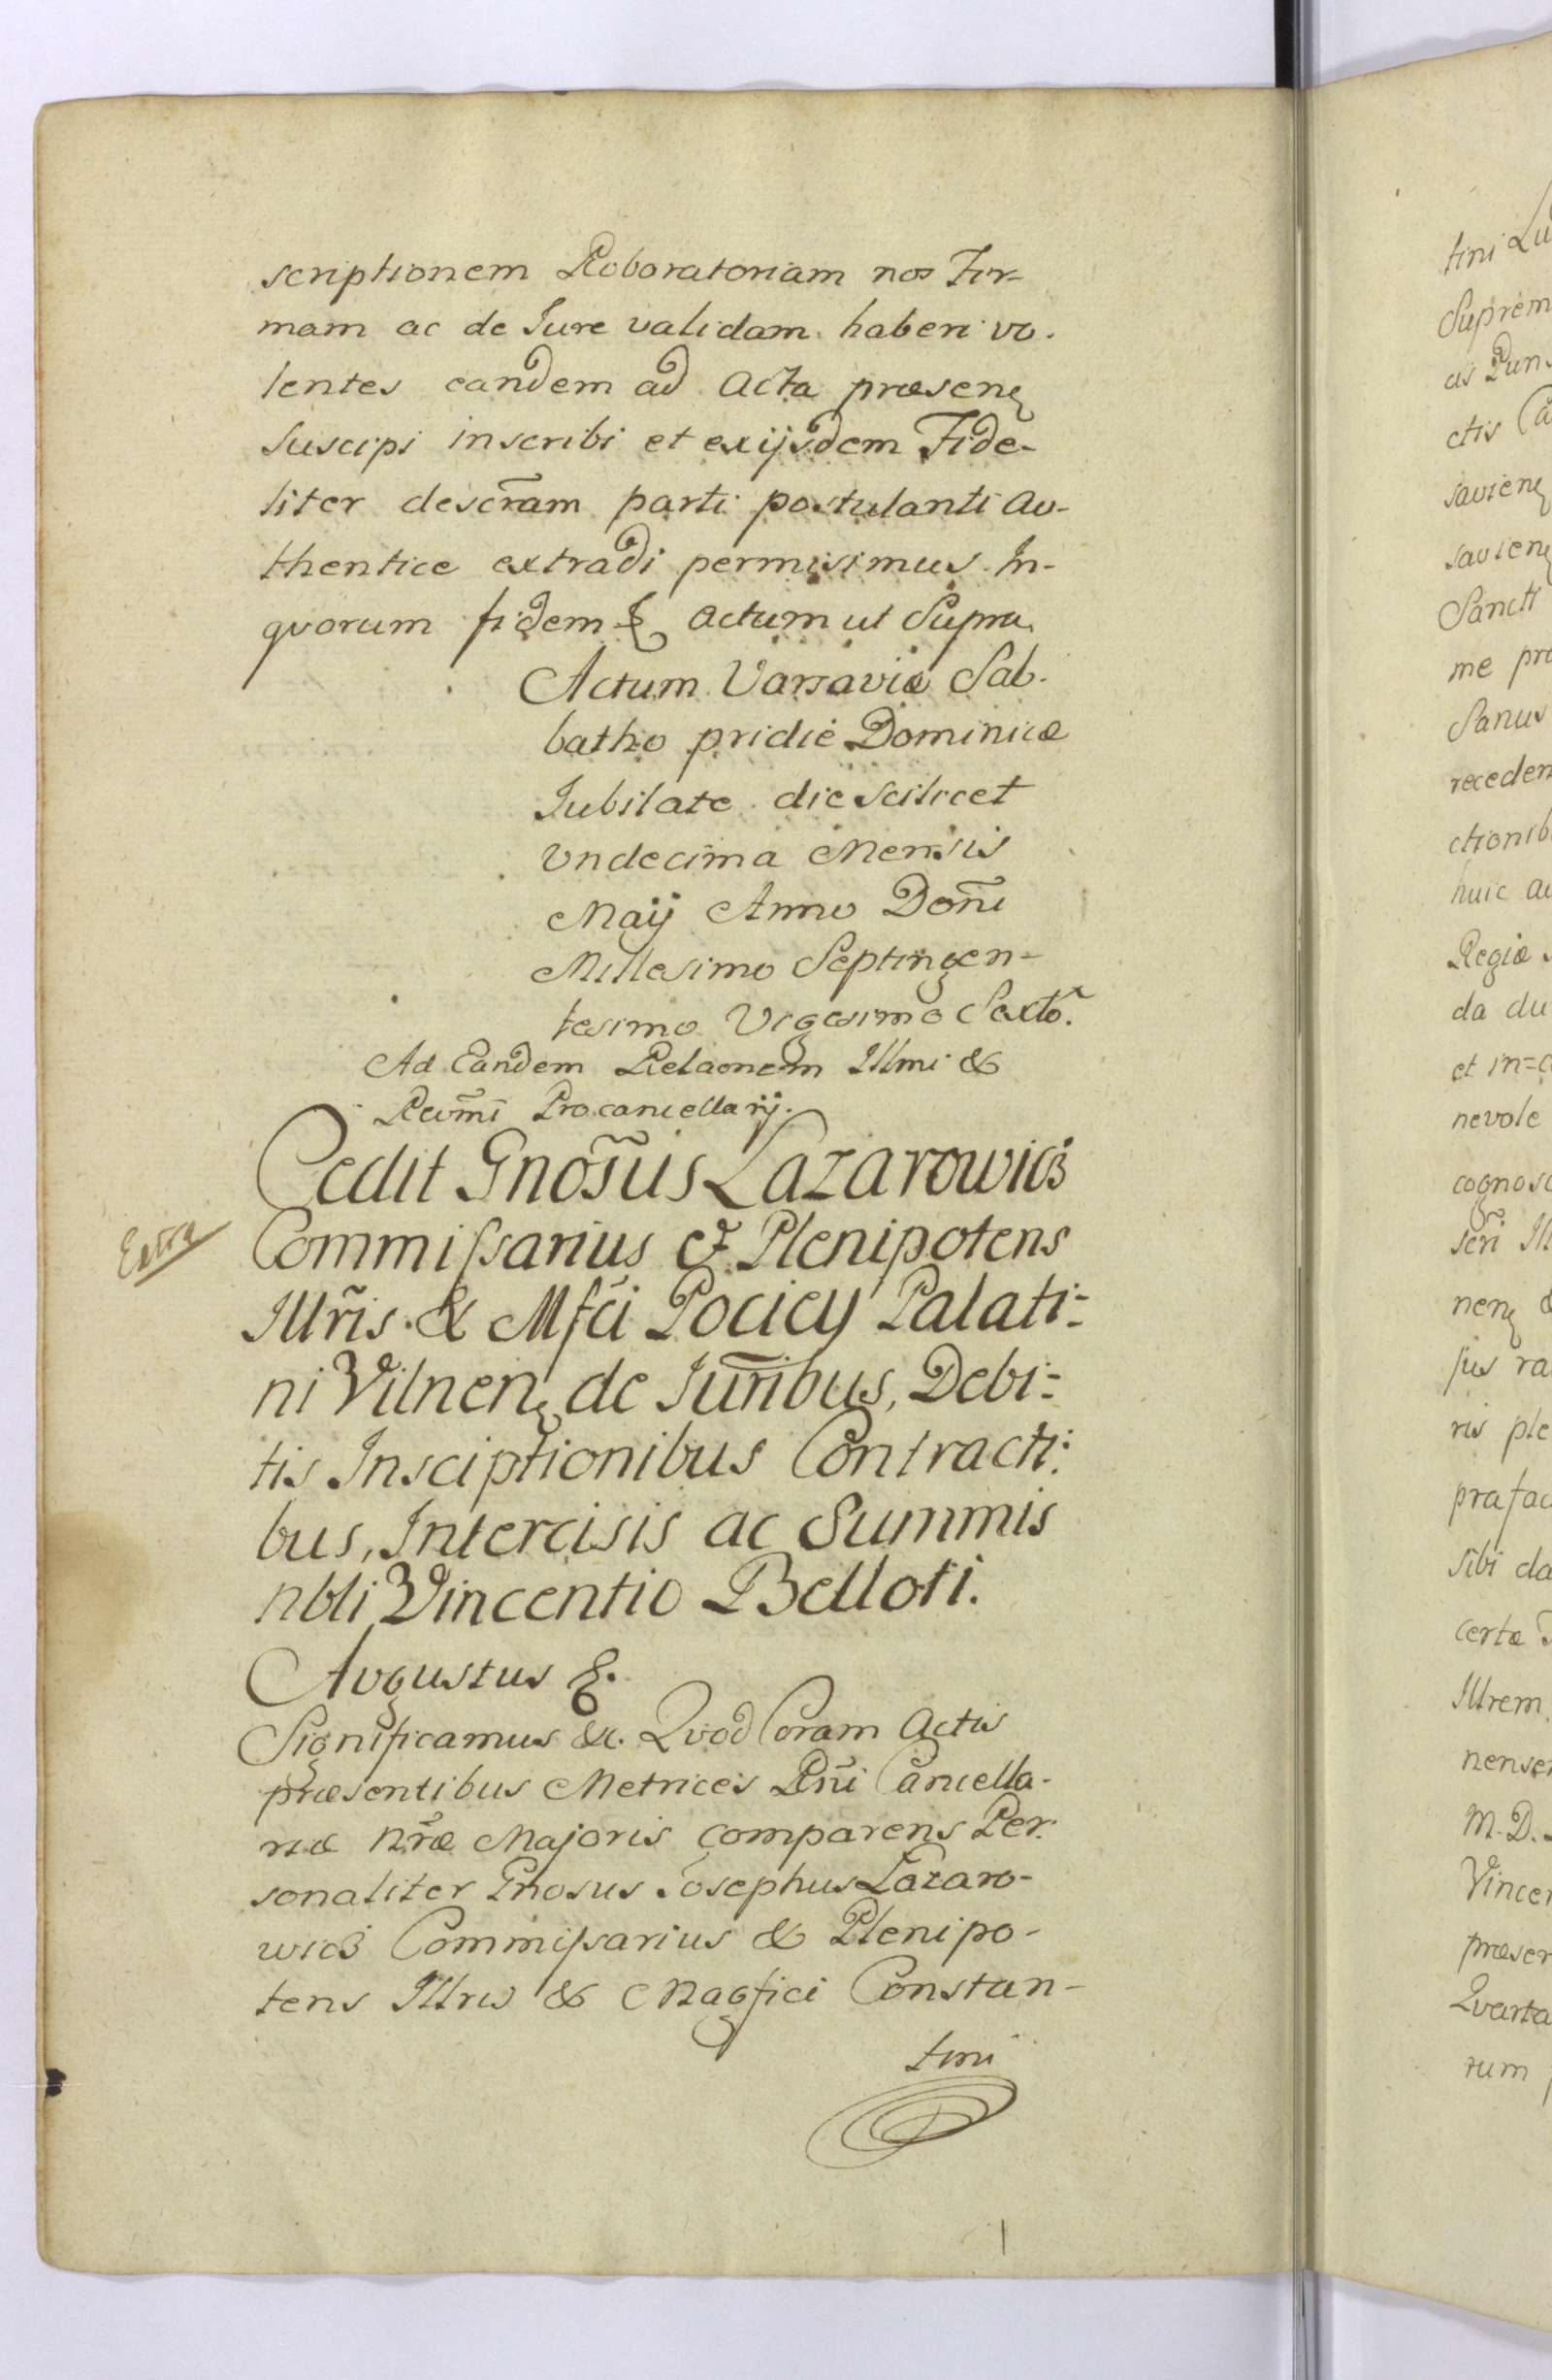 scriptionem Roboratoriam nos Fir-
mam ac de Jure validam haberi vo-
lentes eandem ad Acta præsenꝫ
Suscipi inscribi et exijsdem Fide-
liter descr̃am parti postulanti Au-
thentice extradi permisimus. In-
qvorum fidem & actum ut Supra
Actum Varsaviæ Sab-
batho pridie Dominicæ
Jubilate die scilicet
Vndecima Mensis
Maij Anno Dom̃i
Millesimo Septingen-
tesimo Vigesimo Sexto.
Ad Eandem Relaonem Illmi &
Reum̃i Procancellarij.
Cedit Gnos̃us Lazarowicz
Extra
Commissarius & Plenipotens
Illr̃is & Mfc̃i Pociey Palati-
ni Vilnenꝫ de Jur̃ibus, Debi-
tis Insciptionibus Contracti-
bus, Intercisis ac Summis
nbli Vincentio Belloti.
Augustus &.
Significamus &c. Qvod Coram Actis
præsentibus Metrices Rñi Cancella-
riæ Nr̃æ Majoris comparens Per-
sonaliter Gnosus Josephus Lazaro-
wicz Commissarius & Plenipo-
tens Illris & Magfici Constan-
tini
tini Lu
Suprem
cis Pun
ctis Ca
savienꝫ
savienꝫ
Sancti
me pra
Sanus
receden
ctionib
huic ac
Regiæ
da du
et in=c
nevole
cognosc
ser̃i Ill
nenꝫ &
jus ra
ris ple
præfac
sibi da
certæ
Illrem
nensem
M. D.
Vincen
præsen
Qvarta
rum